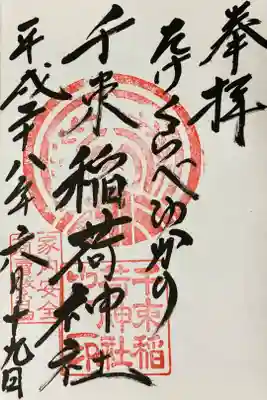 奉拝
たけくらべゆかりの
千束稲荷神社
平成二十八年六月十九日
千束稲
荷神社
家内安全